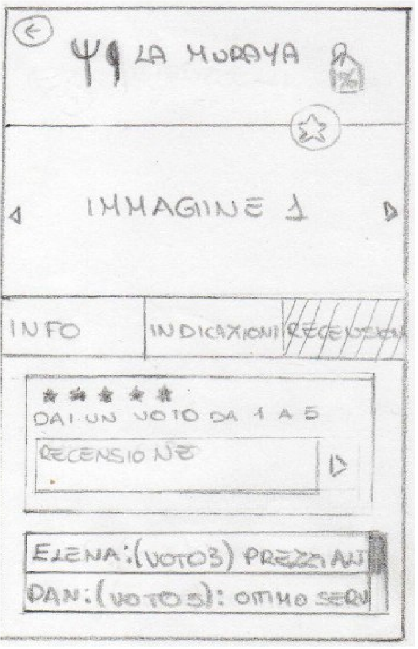 LA MURAYA %
IMMAGIINE 1
INFO INDICAZIONI RECENSION
DAI UN VOTO DA 1 A 5
RECENSIONE
ELENA:(VOTO3) PREZZI ANT
DAN:(VOTO5): OTTIMO SERV